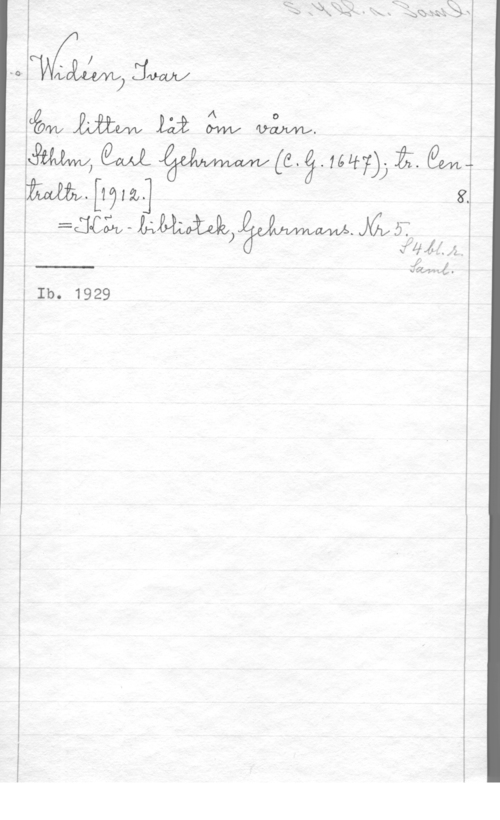 S. 4 bl. r. Saml.
Widéen, Ivar
En litten låt ôm vårn.
Sthlm, Carl Gehrman (C. G. 1647); tr. Cen-
traltr. [1912.] 8.
=Kör-bibliotek, Gehrmans. Nr 5.
S 4 bl. r.
Saml.
Ib. 1929